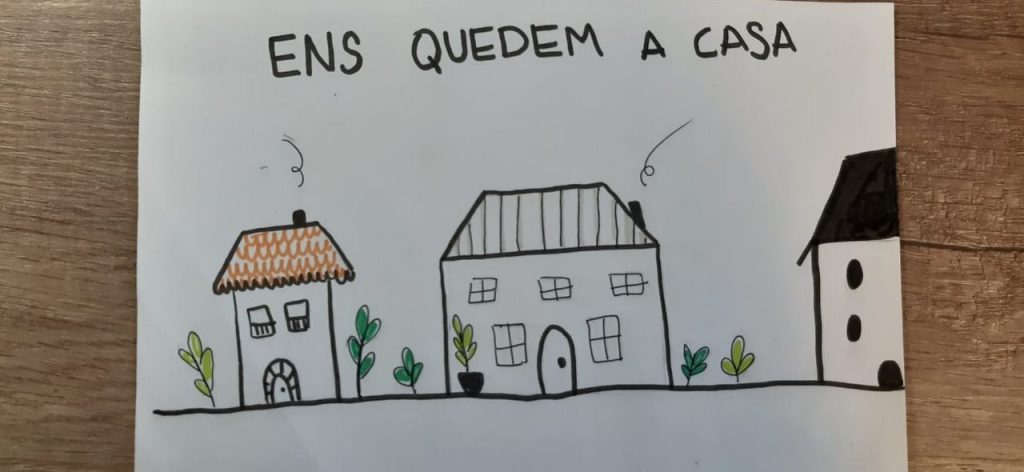 ENS QUEDEM A CASA